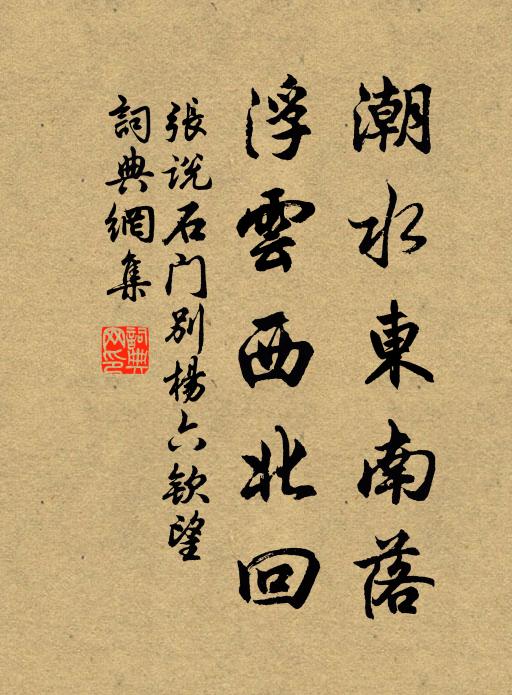 潮水東南落
浮雲西北回
張說石门别楊六欽望
詞典網集
詞典網印